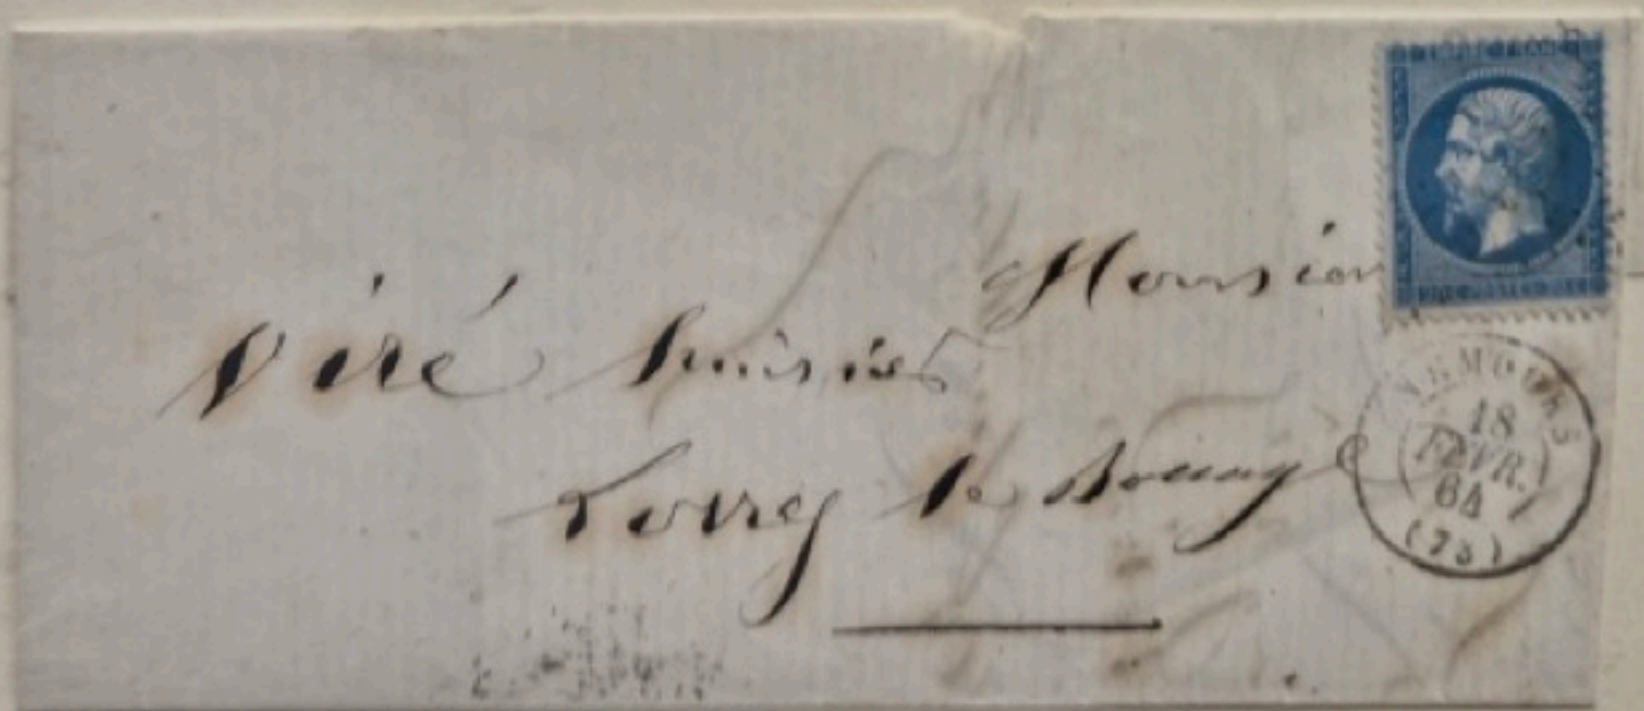 Monsieur
Viré huissier
Lorrez le Bocage
NEMOURS
18
FEVR.
64
(73)